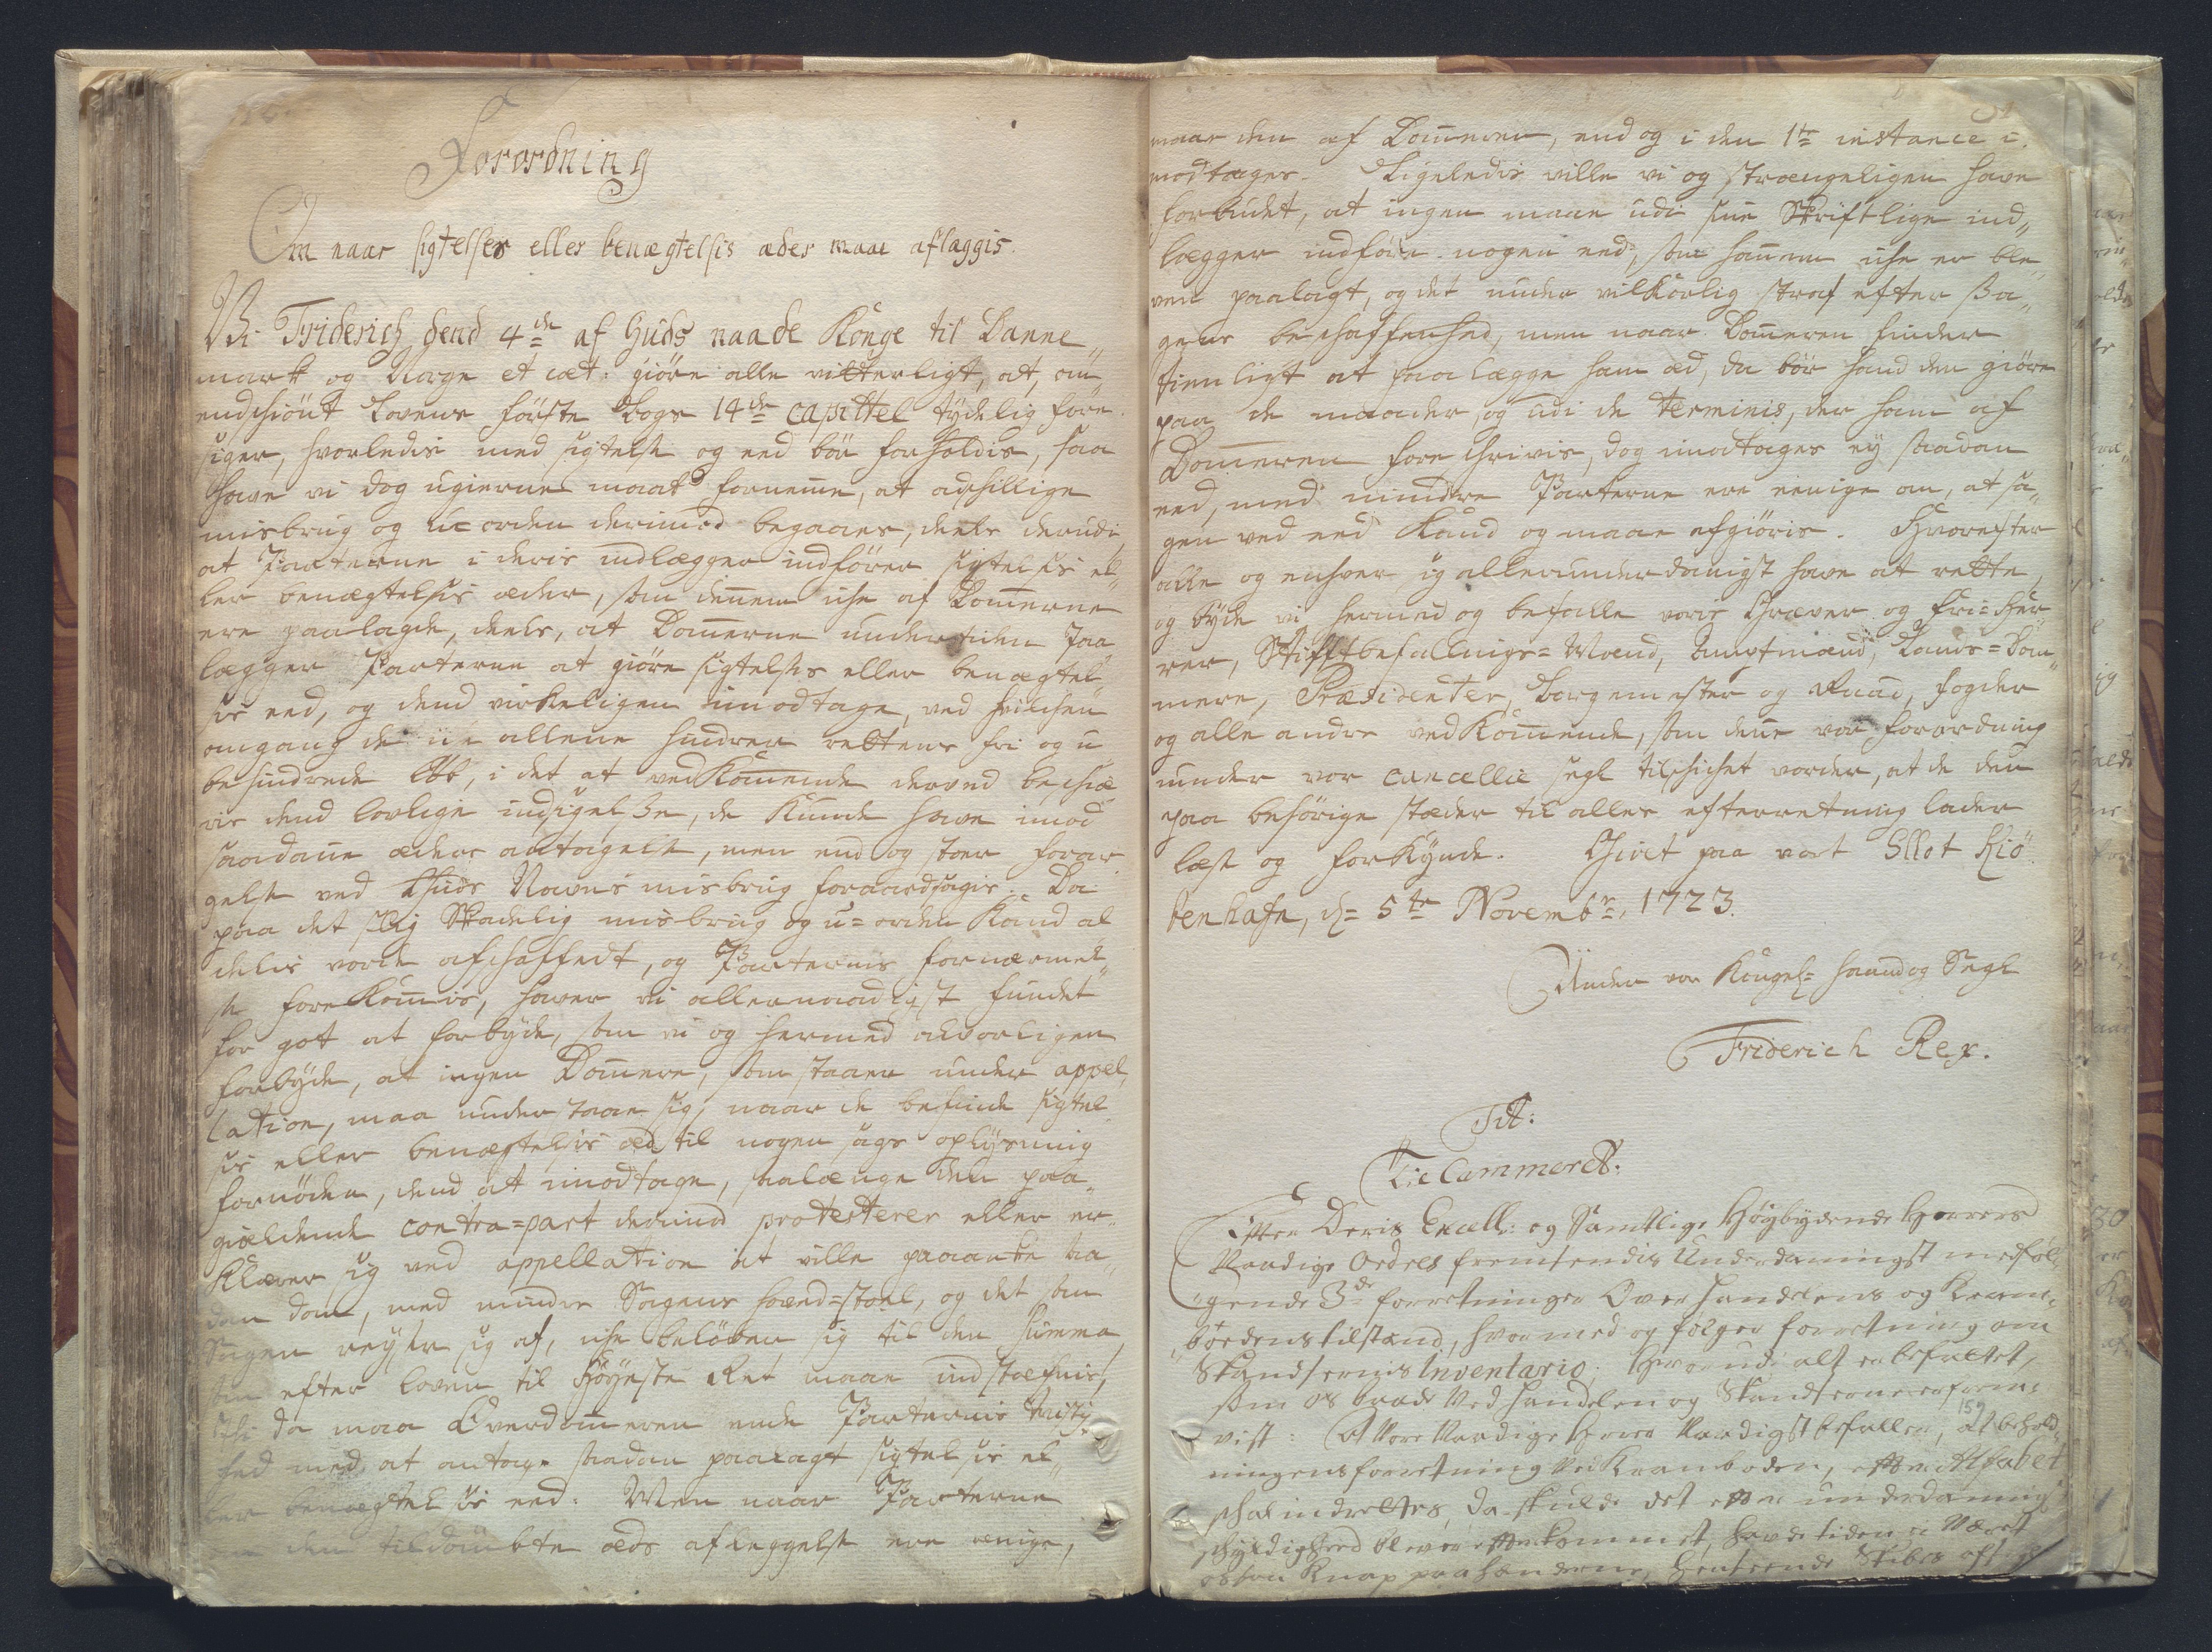 Forordning
Om naar sigtelses eller benægtelsis æder maae aflæggis.
Vi Friderich dend 4de af Guds naade Konge til Danne„
mark og Norge et cæt: giöre alle vitterligt, at, om„
endschiönt Lovens förste Bogs 14de Capittel tÿdelig före„
siger, hvorledis med sigtelse og eed bör forholdis, saa
have vi dog ugierne maat fornemme, at adschillige
misbrug og u-orden derimod begaaes, deels derudi,
at Parterne i deris indlægger indförer sigtelsis el„
ler benægtelsis æder, som dennem iche af Dommerne
ere paalagde, deels, at Dommerne undertiden paa„
lægger Parterne at giöre sigtelses eller benægtel„
sis eed, og dend virkeligen imodtage, ved hvilchen
omgang de ei allene hindrer rettens fri og u„
behindrede löb, i det at vedkommende derved beschiæ„
ris dend lovlige indsigelse, de kunde have imod
saadanne æders antagelse, men end og stoer forar„
gelse ved Guds Navns misbrug foraardsagis. Da
paa det slig skadelig misbrug og u-orden kand al„
delis vorde afschaffedt, og Parternis fornærmel„
se forekommis, haver vi allernaadigst fundet
for got at forbÿde, som vi og hermed alvorligen
forbÿde, at ingen Dommere, som staaer under appel„
lation, maa understaae sig, naar de befinde sigtel„
sis eller benægtelsis æd til nogen sags oplÿsning
fornöden, dend at imodtage, saalænge den paa„
gieldende contra-part derimod protesterer eller er„
klærer sig ved appellation at ville paaanke saa„
dan dom, med mindre Sagens hoved-stoel, og det som
Sagen reyser sig af, iche belöber sig til den Summa,
som efter loven til Höyeste Ret maae indstæfnis,
thi da maa Overdommeren ende Parternis tretti„
hed med, at antage saadan paalagt sigtelsis el„
ler benægtelsis eed. Men naar Parterne
om den tildömbte æds aflæggelse ere eenige,
maae den af Dommeren, end og i den 1te instance i„
modtages. Ligeledis ville vi og strængeligen have
forbudet, at ingen maae udi sine Skriftlige ind„
lægger indföre nogen eed, som hannem iche er ble„
ven paalagt, og det under vilkorlig straf efter Sa„
gens beschaffenhed, men naar Dommeren finder
tienligt at paalægge ham æd, da bör hand den giöre
paa de maader, og udi de terminis, der ham af
Dommeren foreschrivis, dog imodtages ey saadan
eed, med mindre Parterne ere eenige om, at sa„
gen ved eed kand og maae afgiöris. Hvorefter
alle og enhver sig allerunderdanigst have at rette,
og bÿde vi hermed og befalle voris Grever og Fri-Her„
rer, Stiftbefalnings-Mænd, Amtmænd, Lands-Dom„
mere, Præsidenter, Borgemester og Raad, Fogder
og alle andre vedkommende, som denne vor forordning
under vor cancellie segl tilschichet vorder, at de den
paa behörige stæder til alles efterretning lader
læse og forkÿnde. Givet paa vort Slot Kiö„
benhafn, d: 5te Novembr: 1723.
Under vor Kongel: haand og Segl
Friderich Rex.
Tit:
Til Cammeret:
Efter Deris Excell: og Samtlige Höÿbÿdende Herrers
Naadige Ordres fremsendis Underdanningst medföl„
gende 3de forretninger Over handelens og Kram„
boedens tilstand, hvormed og fölger forretning om
Skandsernis Inventario; hvorudi alt er befattet,
som os baade ved handelen og Skandserne er frem„
vist: At Vore Naadige Herrer Naadigst befaller, at behold„
159
ningens forretning ved Kramboden, efter Alphabet
schal indrettes, da skulde det efter underdannig
schÿldighed bleven efterkommet, havde tiden ei været
os saa knap paa hænderne, henseende Skibes af